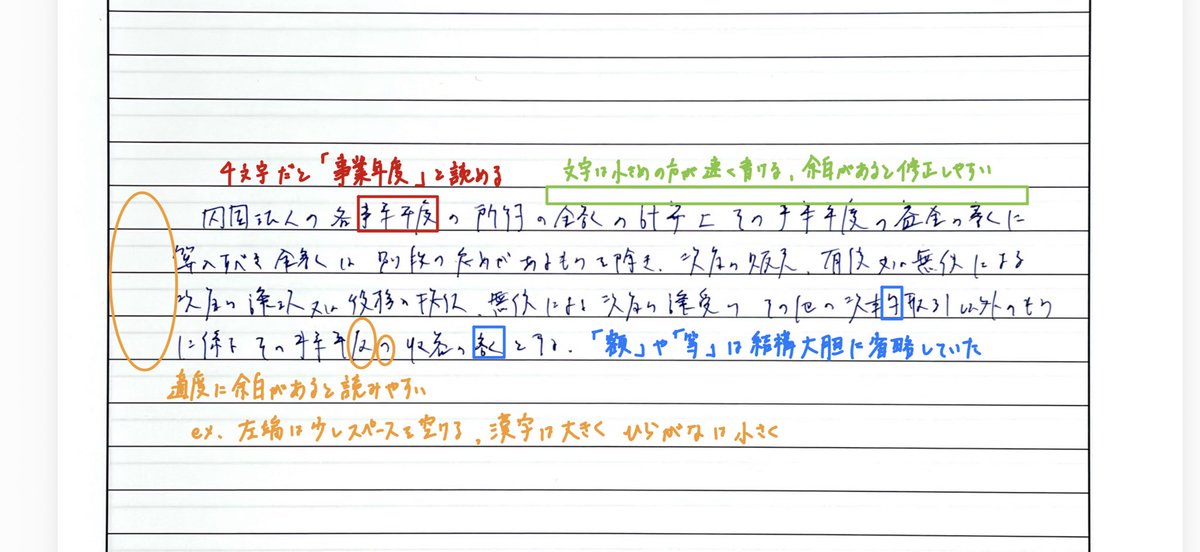 4文字だと「事業年度」と読める
文字は小さめの方が速く書ける、余白があると修正しやすい
内国法人の各事業年度の所得の金額の計算上その事業年度の益金の額に
算入すべき金額は別段の定めがあるものを除き、資産の販売、有償又は無償による
資産の譲渡又は役務の提供、無償による資産の譲受けその他の資本等取引以外のもの
に係るその事業年度の収益の額とする。
「額」や「等」は結構大胆に省略していた
適度に余白があると読みやすい
ex. 左端は少しスペースを空ける、漢字は大きく ひらがなは小さく